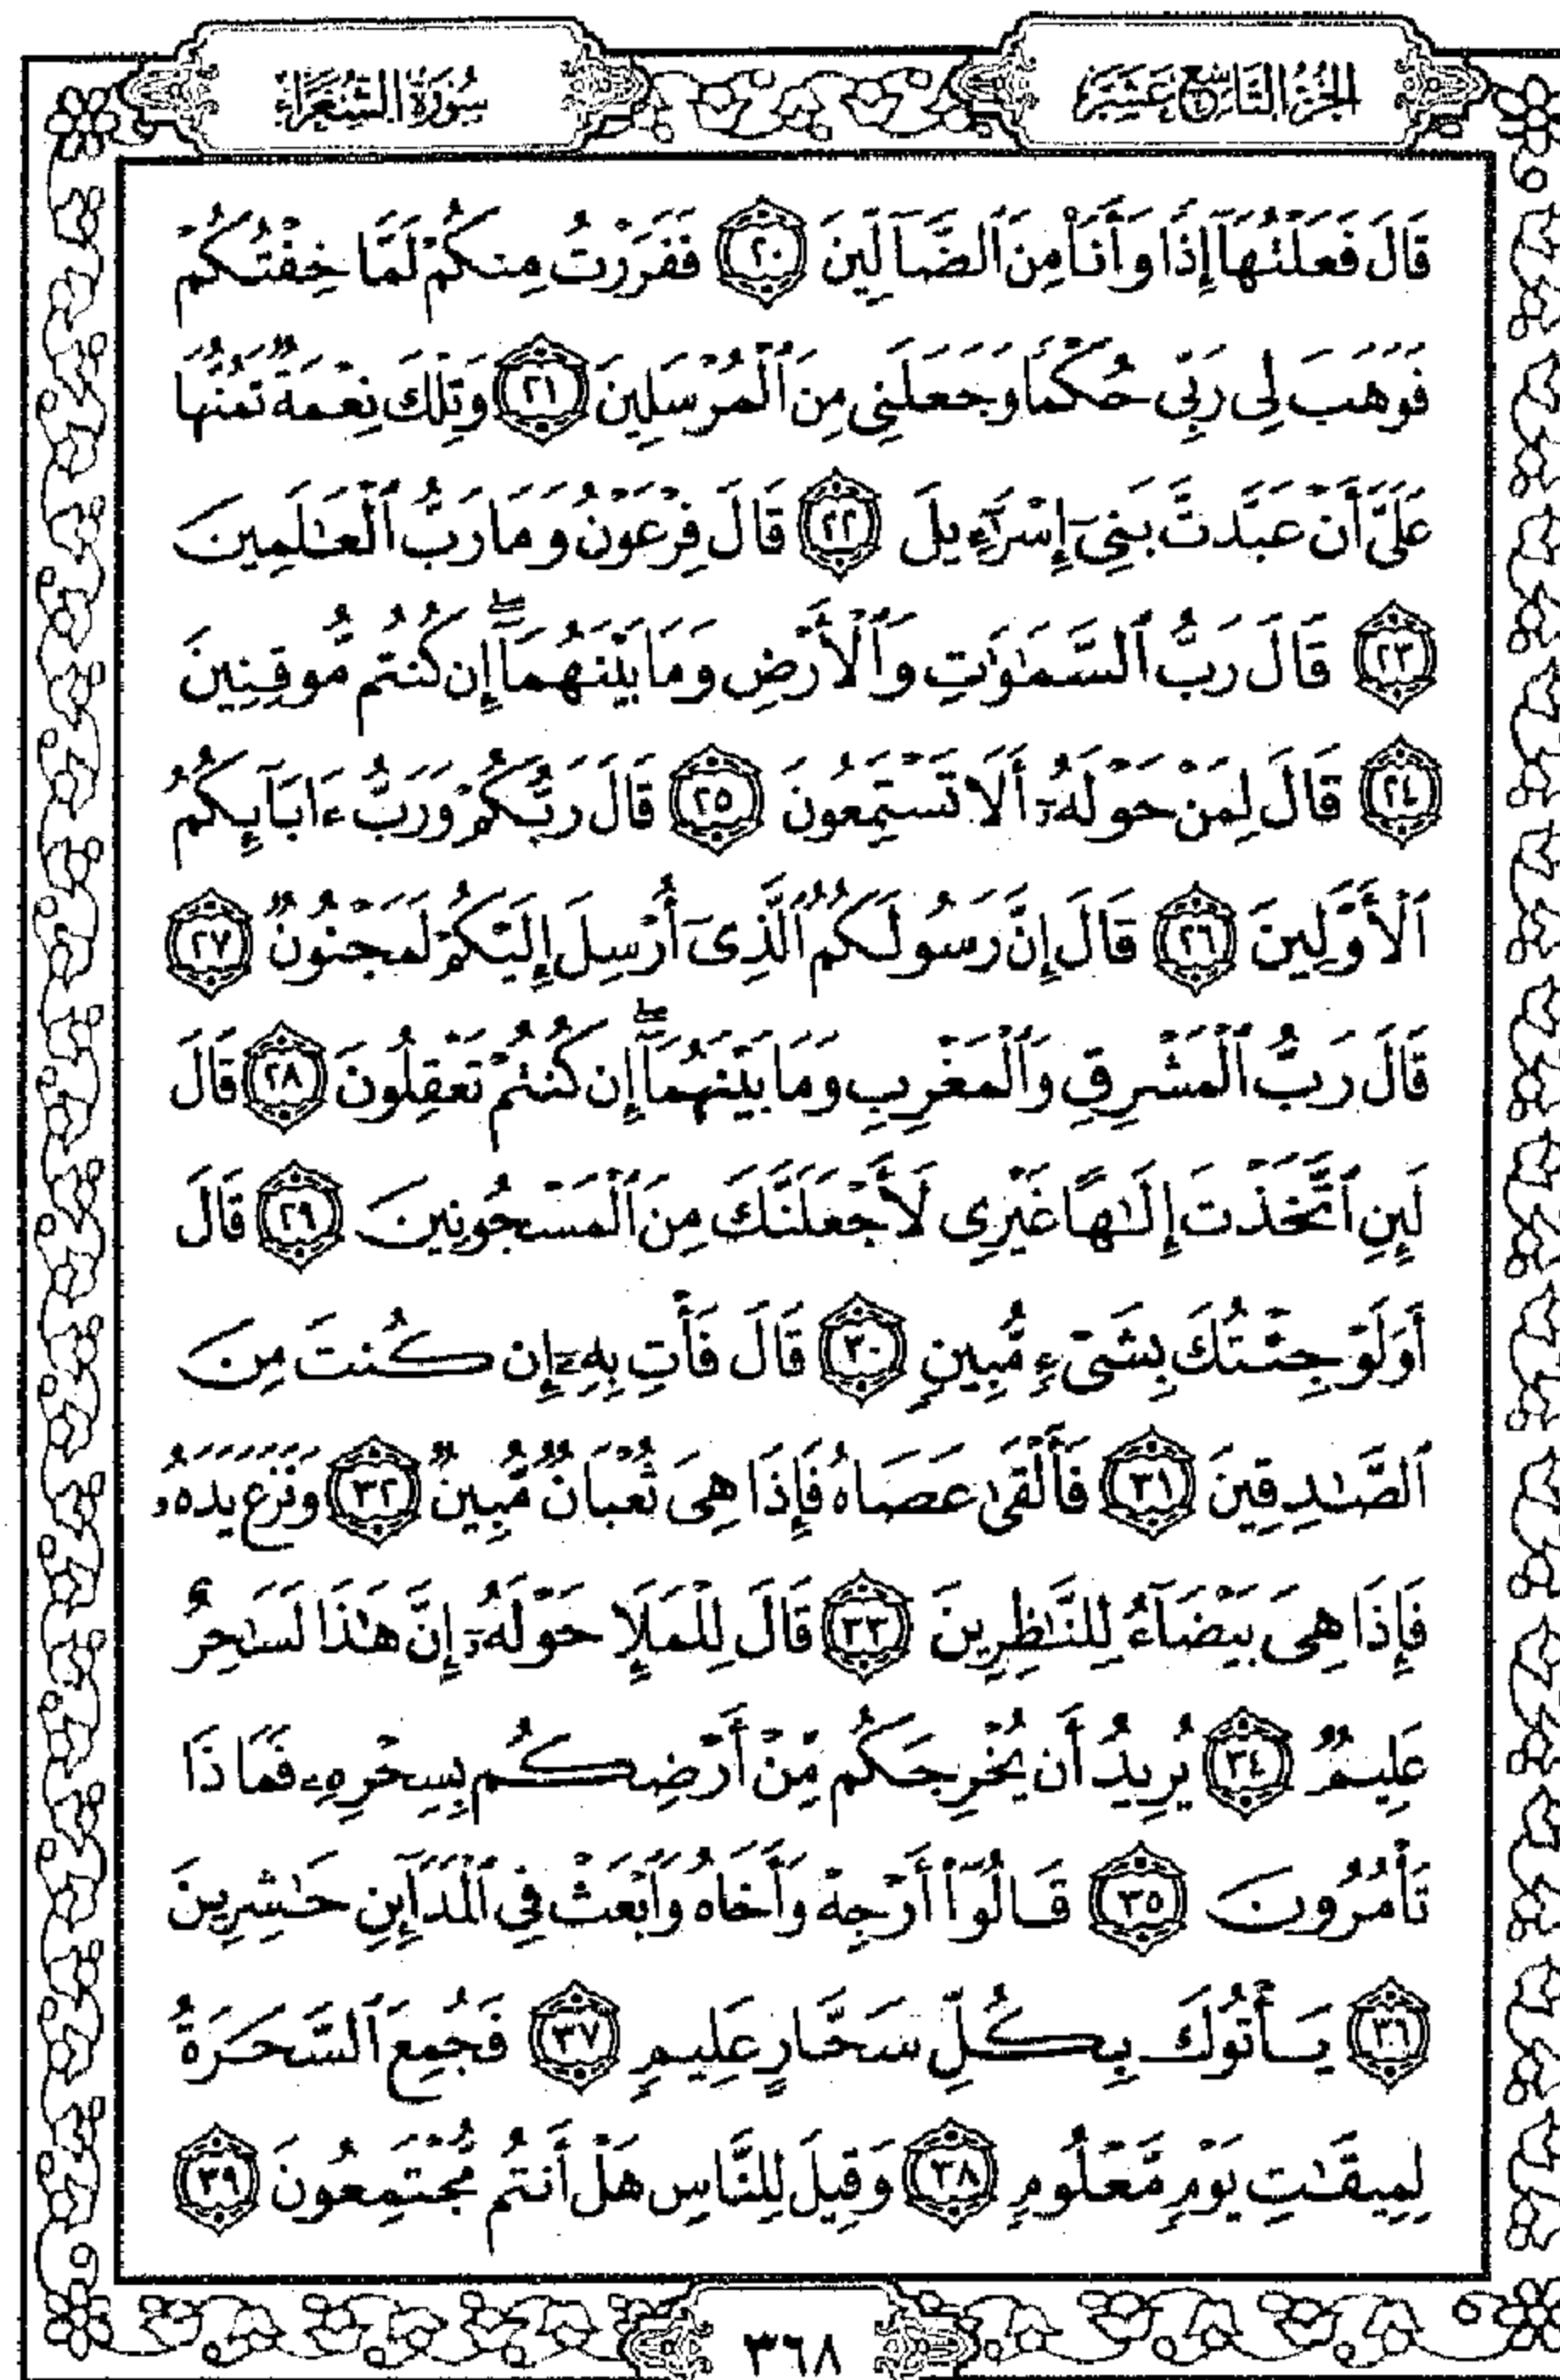 الجزء التاسع عشر
سورة الشعراء
قَالَ فَعَلْتُهَآ إِذًا وَأَنَا۠ مِنَ ٱلضَّآلِّينَ ٢٠ فَفَرَرْتُ مِنكُمْ لَمَّا خِفْتُكُمْ
فَوَهَبَ لِى رَبِّى حُكْمًا وَجَعَلَنِى مِنَ ٱلْمُرْسَلِينَ ٢١ وَتِلْكَ نِعْمَةٌ تَمُنُّهَا
عَلَىَّ أَنْ عَبَّدتَّ بَنِىٓ إِسْرَٰٓءِيلَ ٢٢ قَالَ فِرْعَوْنُ وَمَا رَبُّ ٱلْعَٰلَمِينَ
٢٣ قَالَ رَبُّ ٱلسَّمَٰوَٰتِ وَٱلْأَرْضِ وَمَا بَيْنَهُمَآ ۖ إِن كُنتُم مُّوقِنِينَ
٢٤ قَالَ لِمَنْ حَوْلَهُۥٓ أَلَا تَسْتَمِعُونَ ٢٥ قَالَ رَبُّكُمْ وَرَبُّ ءَابَآئِكُمُ
ٱلْأَوَّلِينَ ٢٦ قَالَ إِنَّ رَسُولَكُمُ ٱلَّذِىٓ أُرْسِلَ إِلَيْكُمْ لَمَجْنُونٌ ٢٧
قَالَ رَبُّ ٱلْمَشْرِقِ وَٱلْمَغْرِبِ وَمَا بَيْنَهُمَآ ۖ إِن كُنتُمْ تَعْقِلُونَ ٢٨ قَالَ
لَئِنِ ٱتَّخَذْتَ إِلَٰهًا غَيْرِى لَأَجْعَلَنَّكَ مِنَ ٱلْمَسْجُونِينَ ٢٩ قَالَ
أَوَلَوْ جِئْتُكَ بِشَىْءٍ مُّبِينٍ ٣٠ قَالَ فَأْتِ بِهِۦٓ إِن كُنتَ مِنَ
ٱلصَّٰدِقِينَ ٣١ فَأَلْقَىٰ عَصَاهُ فَإِذَا هِىَ ثُعْبَانٌ مُّبِينٌ ٣٢ وَنَزَعَ يَدَهُۥ
فَإِذَا هِىَ بَيْضَآءُ لِلنَّٰظِرِينَ ٣٣ قَالَ لِلْمَلَإِ حَوْلَهُۥٓ إِنَّ هَٰذَا لَسَٰحِرٌ
عَلِيمٌ ٣٤ يُرِيدُ أَن يُخْرِجَكُم مِّنْ أَرْضِكُم بِسِحْرِهِۦ فَمَاذَا
تَأْمُرُونَ ٣٥ قَالُوٓا۟ أَرْجِهْ وَأَخَاهُ وَٱبْعَثْ فِى ٱلْمَدَآئِنِ حَٰشِرِينَ
٣٦ يَأْتُوكَ بِكُلِّ سَحَّارٍ عَلِيمٍ ٣٧ فَجُمِعَ ٱلسَّحَرَةُ
لِمِيقَٰتِ يَوْمٍ مَّعْلُومٍ ٣٨ وَقِيلَ لِلنَّاسِ هَلْ أَنتُم مُّجْتَمِعُونَ ٣٩
٣٦٨